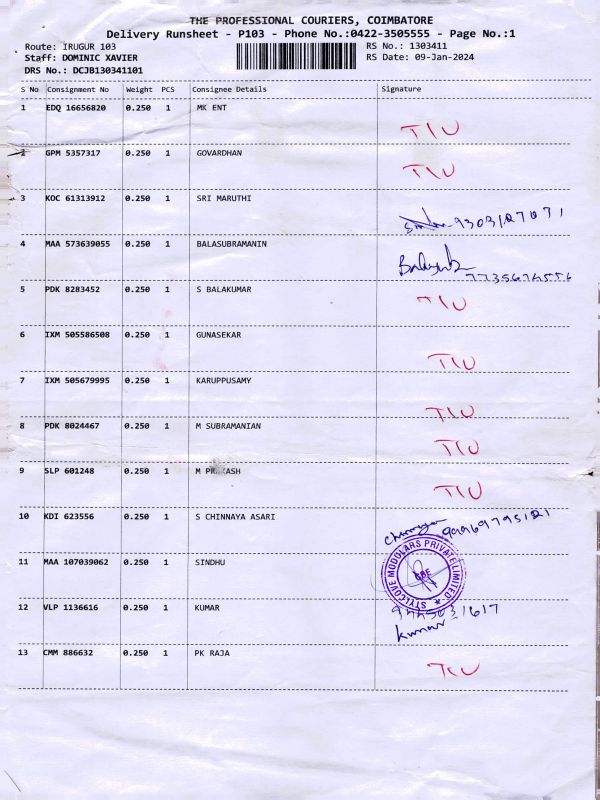 THE PROFESSIONAL COURIERS, COIMBATORE
Delivery Runsheet - P103 - Phone No.:0422-3505555 - Page No.:1
Route: IRUGUR 103 RS No.: 1303411
Staff: DOMINIC XAVIER RS Date: 09-Jan-2024
DRS No.: DCJB130341101
S No Consignment No Weight PCS Consignee Details Signature
1 EDQ 16656820 0.250 1 MK ENT
2 GPM 5357317 0.250 1 GOVARDHAN
3 KOC 61313912 0.250 1 SRI MARUTHI
4 MAA 573639055 0.250 1 BALASUBRAMANIN
5 PDK 8283452 0.250 1 S BALAKUMAR
6 IXM 505586508 0.250 1 GUNASEKAR
7 IXM 505679995 0.250 1 KARUPPUSAMY
8 PDK 8024467 0.250 1 M SUBRAMANIAN
9 SLP 601248 0.250 1 M PRAKASH
10 KDI 623556 0.250 1 S CHINNAYA ASARI
11 MAA 107039062 0.250 1 SINDHU
STYLCOVE MODULARS PRIVATE LIMITED
CBE
12 VLP 1136616 0.250 1 KUMAR
kumar
13 CMM 886632 0.250 1 PK RAJA